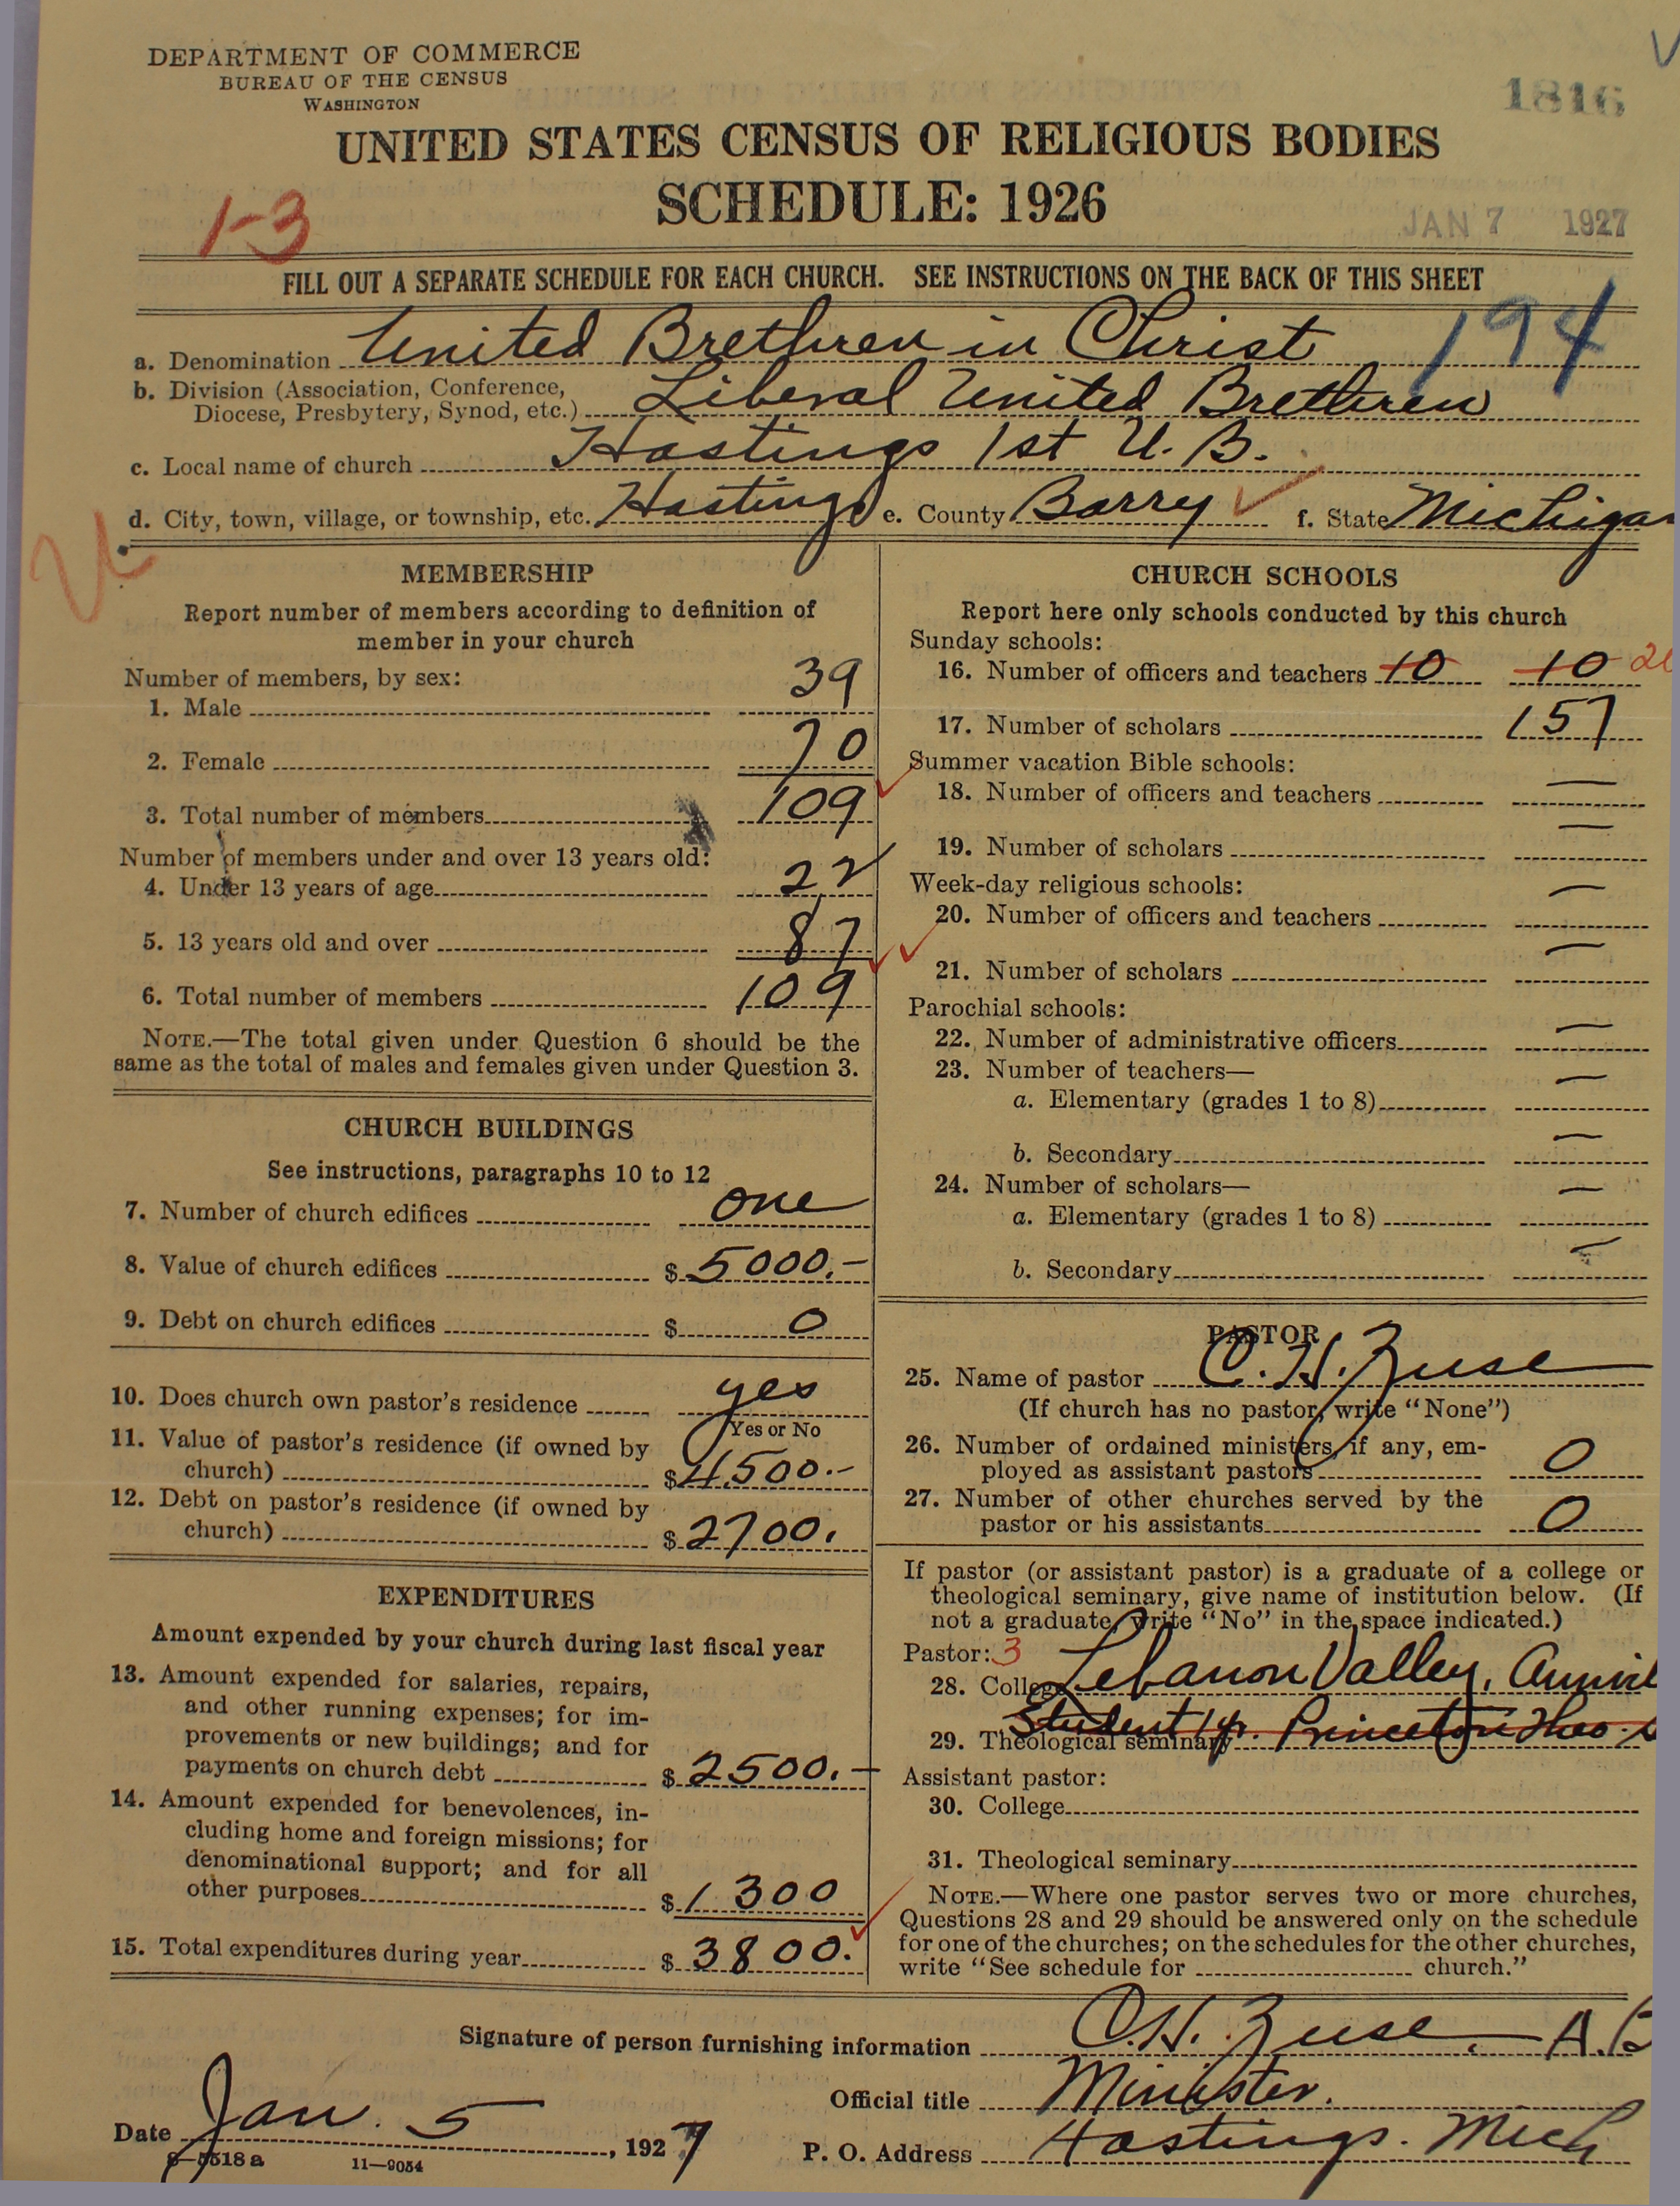 DEPARTMENT OF COMMERCE
BUREAU OF THE CENSUS
WASHINGTON
1816
UNITED STATES CENSUS OF RELIGIOUS BODIES
SCHEDULE: 1926
1-3
JAN 7 1927
FILL OUT A SEPARATE SCHEDULE FOR EACH CHURCH. SEE INSTRUCTIONS ON THE BACK OF THIS SHEET
194
a. Denomination United Brethren in Christ
b. Division (Association, Conference,
Diocese, Presbytery, Synod, etc.) Liberal United Brethren
c. Local name of church Hastings 1st U. B.
d. City, town, village, or township, etc. Hastings e. County Barry f. State Michigan
MEMBERSHIP
Report number of members according to definition of
member in your church
Number of members, by sex:
1. Male 39
2. Female 70
3. Total number of members 109
Number of members under and over 13 years old:
4. Under 13 years of age 22
5. 13 years old and over 87
6. Total number of members 109
NOTE.—The total given under Question 6 should be the
same as the total of males and females given under Question 3.
CHURCH BUILDINGS
See instructions, paragraphs 10 to 12
7. Number of church edifices one
8. Value of church edifices $ 5000.-
9. Debt on church edifices $ 0
10. Does church own pastor's residence yes
Yes or No
11. Value of pastor's residence (if owned by
church) $ 4500.-
12. Debt on pastor's residence (if owned by
church) $ 2700.
EXPENDITURES
Amount expended by your church during last fiscal year
13. Amount expended for salaries, repairs,
and other running expenses; for im-
provements or new buildings; and for
payments on church debt $ 2500.-
14. Amount expended for benevolences, in-
cluding home and foreign missions; for
denominational support; and for all
other purposes $ 1300
15. Total expenditures during year $ 3800.
CHURCH SCHOOLS
Report here only schools conducted by this church
Sunday schools:
16. Number of officers and teachers 10 10
17. Number of scholars 157
Summer vacation Bible schools:
18. Number of officers and teachers —
19. Number of scholars —
Week-day religious schools:
20. Number of officers and teachers —
21. Number of scholars —
Parochial schools:
22. Number of administrative officers —
23. Number of teachers—
a. Elementary (grades 1 to 8) —
b. Secondary —
24. Number of scholars—
a. Elementary (grades 1 to 8) —
b. Secondary —
PASTOR
25. Name of pastor C. H. Zuse
(If church has no pastor, write "None")
26. Number of ordained ministers, if any, em-
ployed as assistant pastors 0
27. Number of other churches served by the
pastor or his assistants 0
If pastor (or assistant pastor) is a graduate of a college or
theological seminary, give name of institution below. (If
not a graduate, write "No" in the space indicated.)
Pastor: 3
28. College Lebanon Valley, Annvil
29. Theological seminary Student 1 yr. Princeton Theo. S
Assistant pastor:
30. College
31. Theological seminary
NOTE.—Where one pastor serves two or more churches,
Questions 28 and 29 should be answered only on the schedule
for one of the churches; on the schedules for the other churches,
write "See schedule for church."
Signature of person furnishing information C. H. Zuse. A.B
Official title Minister.
Date Jan. 5, 1927
P. O. Address Hastings. Mich
8-5518 a 11-9054